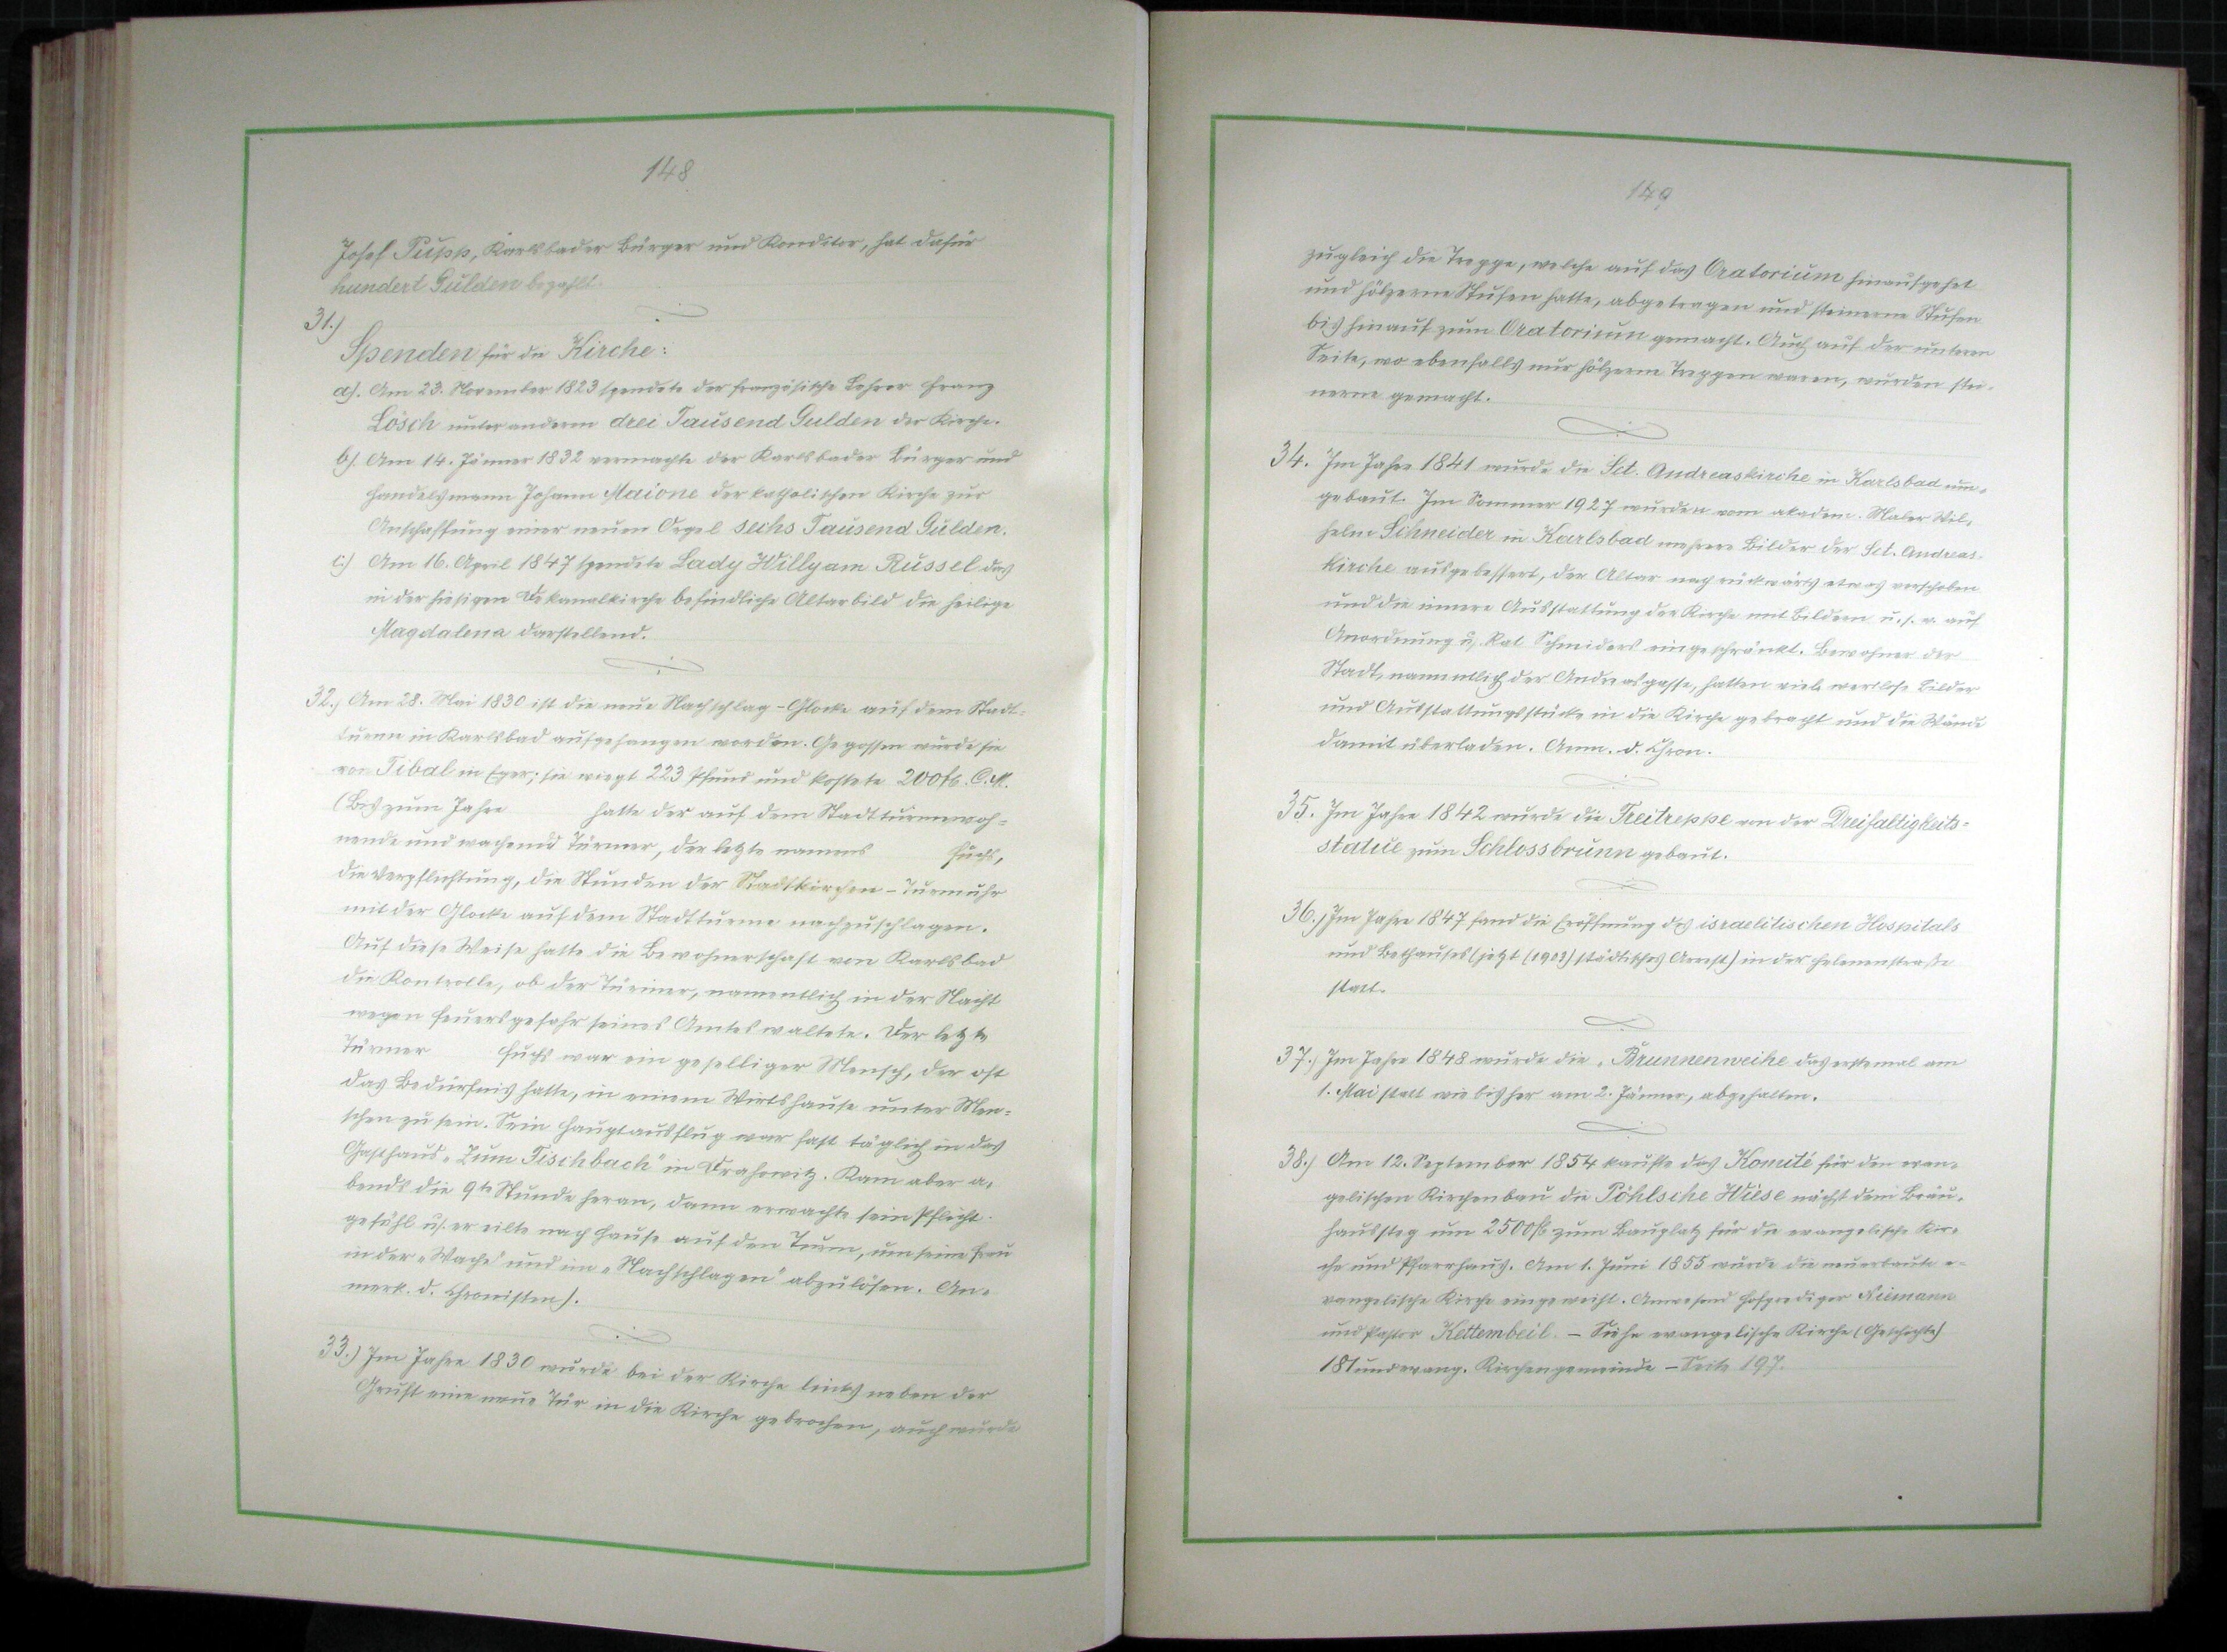 148
Josef Pupp, Karlsbader Bürger und Konditor, hat dafür
hundert Gulden bezahlt.
31.)
Spenden für die Kirche:
a). Am 23. November 1823 spendete der französische Lehrer Franz
Lösch unter anderem drei Tausend Gulden der Kirche.
b). Am 14. Jänner 1832 vermachte der Karlsbader Bürger und
Handelsmann Johann Maione der katholischen Kirche zur
Anschaffung einer neuen Orgel sechs Tausend Gulden.
c.) Am 16. April 1847 spendete Lady Willyam Russel das
in der hiesigen Dekanalkirche befindliche Altarbild die heilige
Magdalena darstellend.
32.) Am 28. Mai 1830 ist die neue Nachschlag-Glocke auf dem Stadt-
turm in Karlsbad aufgehangen worden. Gegossen wurde sie
von Tibal in Eger; sie wiegt 223 Pfund und kostete 200 fl. C.M.
(Bis zum Jahre hatte der auf dem Stadtturme woh-
nende und wachende Türmer, der letzte namens Fuchs,
die Verpflichtung, die Stunden der Stadtkirchen-Turmuhr
mit der Glocke auf dem Stadtturme nachzuschlagen.
Auf diese Weise hatte die Bewohnerschaft von Karlsbad
die Kontrolle, ob der Türmer, namentlich in der Nacht
wegen Feuersgefahr seines Amtes waltete. Der letzte
Türmer Fuchs war ein geselliger Mensch, der oft
das Bedürfnis hatte, in einem Wirtshause unter Men-
schen zu sein. Sein Hauptausflug war fast täglich in das
Gasthaus „Zum Fischbach" in Drahowitz. Kam aber a-
bends die 9te Stunde heran, dann erwachte sein Pflicht-
gefühl u. er eilte nach Hause auf den Turm, um seine Frau
in der „Wache" und im „Nachschlagen" abzulösen. An-
merk. d. Chronisten).
33.) Im Jahre 1830 wurde bei der Kirche links neben der
Gruft eine neue Tür in die Kirche gebrochen, auch wurde
149
zugleich die Treppe, welche auf das Oratorium hinaufgehet
und hölzerne Stufen hatte, abgetragen und steinerne Stufen
bis hinauf zum Oratorium gemacht. Auch auf der unteren
Seite, wo ebenfalls nur hölzerne Treppen waren, wurden stei-
nerne gemacht.
34. Im Jahre 1841 wurde die Sct. Andreaskirche in Karlsbad um-
gebaut. Im Sommer 1927 wurden vom akadem. Maler Wil-
helm Schneider in Karlsbad mehrere Bilder der Sct. Andreas-
kirche ausgebessert, der Altar nach rückwärts etwas verschoben
und die innere Ausstattung der Kirche mit Bildern u.s.w. auf
Anordnung u. Rat Schneiders eingeschränkt. Bewohner der
Stadt, namentlich der Andreasgasse, hatten viele wertlose Bilder
und Ausstattungsstücke in die Kirche gebracht und die Wände
damit überladen. Anm. d. Chron.
35. Im Jahre 1842 wurde die Freitreppe von der Dreifaltigkeits-
statue zum Schlossbrunn gebaut.
36.) Im Jahre 1847 fand die Eröffnung des israelitischen Hospitals
und Bethauses (jetzt (1903) städtisches Arrest) in der Helenenstraße
statt.
37.) Im Jahre 1848 wurde die „Brunnenweihe das erstemal am
1. Mai statt wie bisher am 2. Jänner, abgehalten.
38.) Am 12. September 1854 kaufte das Komité für den evan-
gelischen Kirchenbau die Pöhlsche Wiese nächst dem Bräu-
haussteg um 2500 fl. zum Bauplatz für die evangelische Kir-
che und Pfarrhaus. Am 1. Juni 1855 wurde die neuerbaute e-
vangelische Kirche eingeweiht. Anwesend Hofprediger Niemann
und Pastor Kettembeil. – Siehe evangelische Kirche (Geschichte)
181 und evang. Kirchengemeinde – Seite 197.